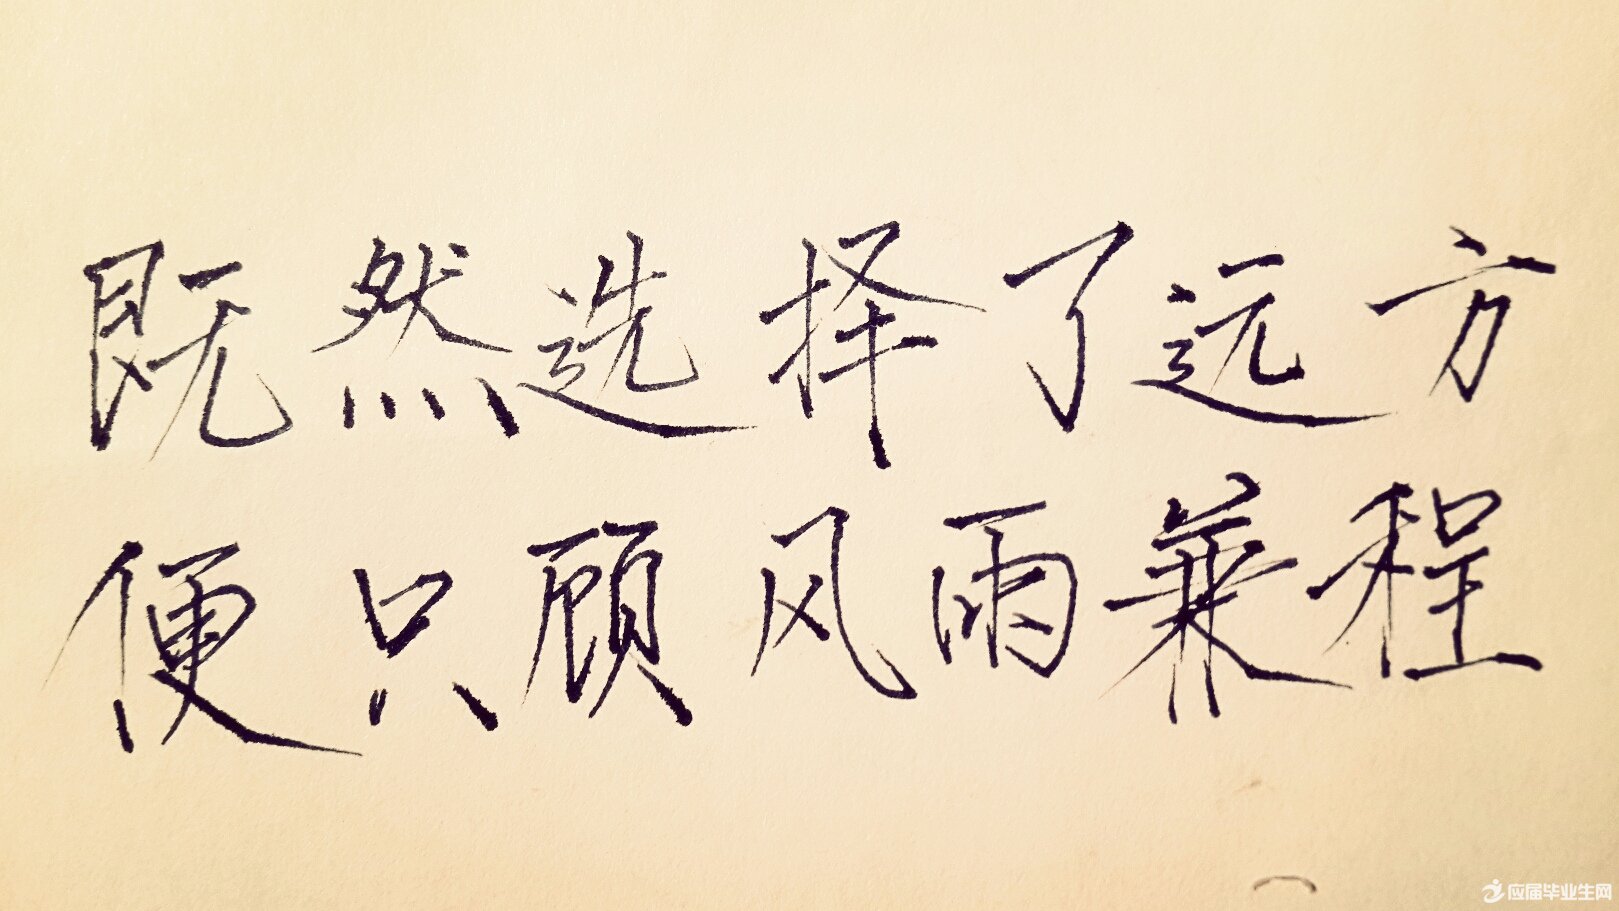 既然选择了远方
便只顾风雨兼程
应届毕业生网